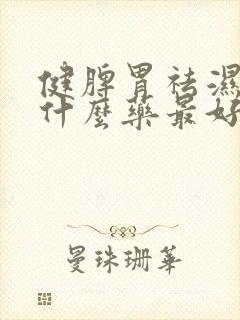 健脾胃祛濕
什麼藥最好
曼珠珊華